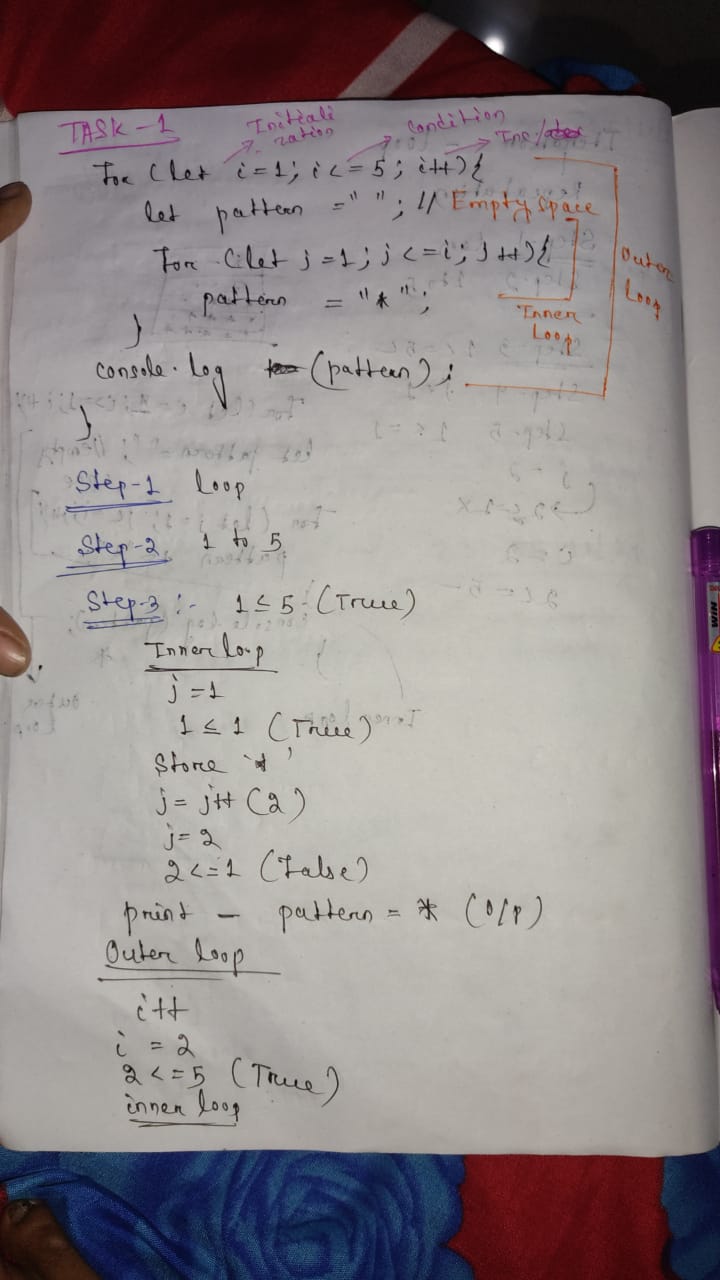 TASK-1
Initiali
zation
Condition
Inc/
For (let i=1; i<=5; i++){
let pattern =" "; // Empty space
For (let j=1; j<=i; j++){
pattern = "*";
}
Inner
Loop
Outer
Loop
console.log (pattern);
}
Step-1 loop
Step-2 1 to 5
Step-3 :- 1≤5-(True)
Inner loop
j=1
1≤1 (True)
Store '*'
j= j++ (2)
j=2
2<=1 (False)
print - pattern = * (O/P)
Outer loop
i++
i = 2
2<=5 (True)
inner loop
WIN